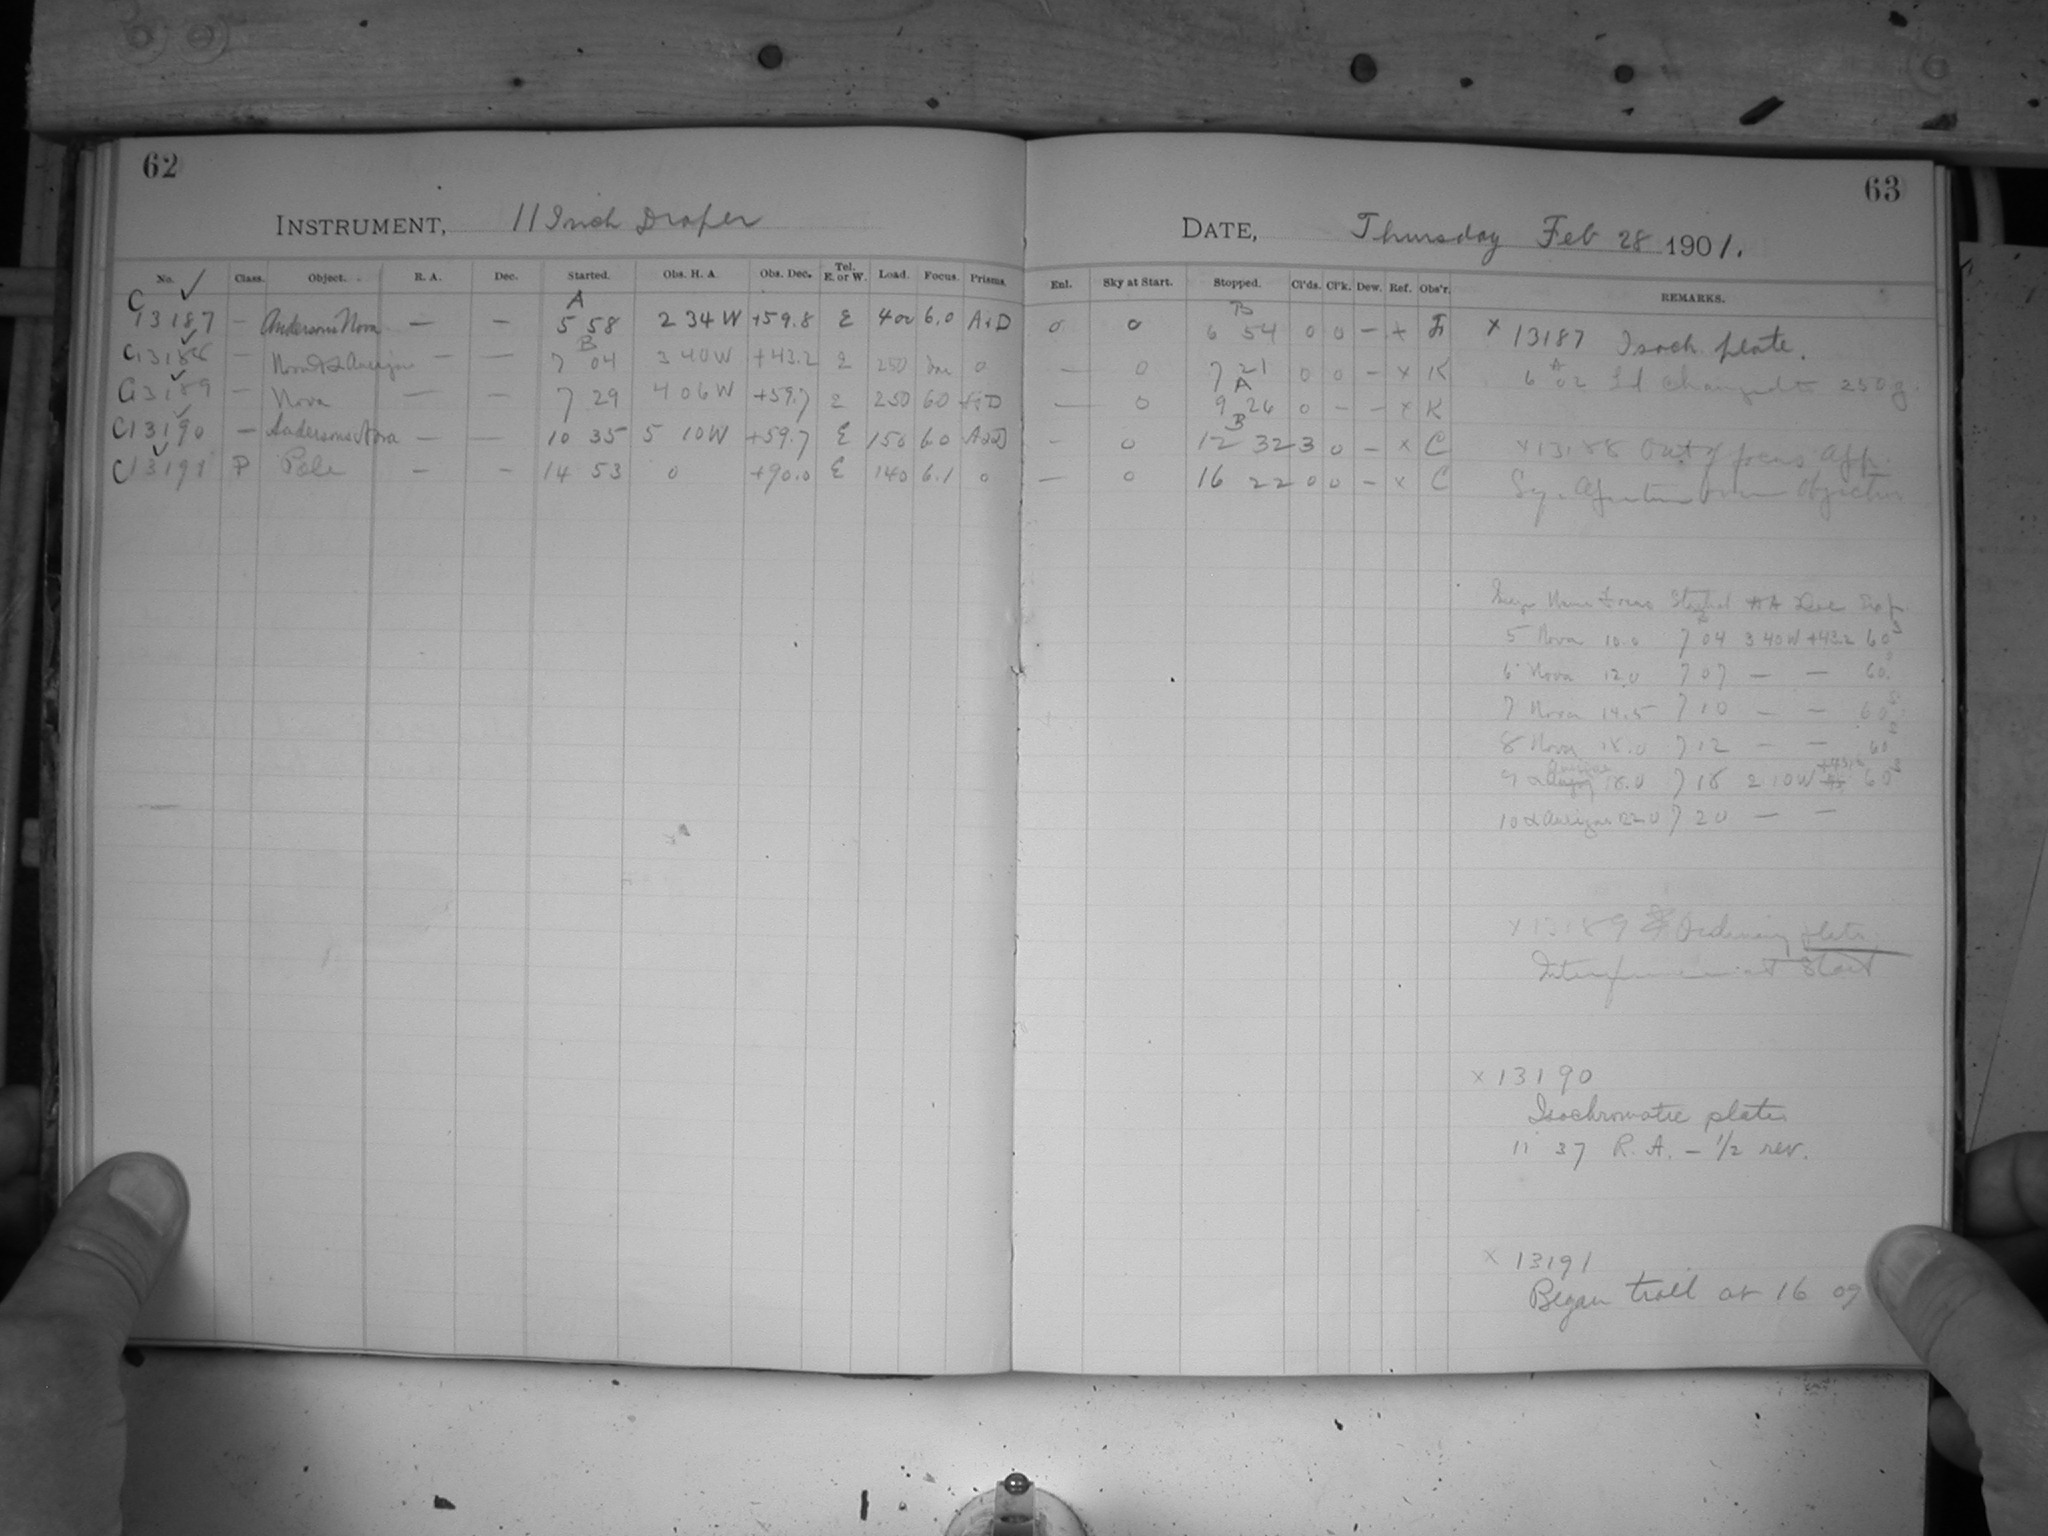 62
INSTRUMENT, 11 Inch Draper
No. ✓ Class. Object. R. A. Dec. Started. Obs. H. A. Obs. Dec. Tel. E. or W. Load. Focus. Prisms.
C 13187 – Andersons Nova — — A 5 58 2 34 W +59.8 E 400 6.0 A+D
C13188 – Nova & α Aurigae — — B 7 04 3 40 W +43.2 E 250 0
C13189 – Nova — — 7 29 4 06 W +59.7 E 250 60 A+D
C13190 – Andersons Nova — — 10 35 5 10W +59.7 E 150 60 A&D
C13191 P Pole — — 14 53 0 +90.0 E 140 6.1 0
63
DATE, Thursday Feb 28 1901.
Enl. Sky at Start. Stopped. Cl'ds. Cl'k. Dew. Ref. Obs'r. REMARKS.
0 0 B 6 54 0 0 – x
— 0 7 21 0 0 – x K
— 0 A 9 26 0 – – x K
– 0 B 12 32 3 0 – x C
— 0 16 22 0 0 – x C
x 13187 Isoch plate.
6 A 02 Ld changed to 250 g.
x 13188 Out of focus
Started HA Dec
5 Nova 10.0 7 04 3 40 W +43.2 60s
6 Nova 12.0 7 07 — — 60s
7 Nova 14.5 7 10 — — 60s
8 Nova 18.0 7 12 — — 60s
9 α Aurigae 18.0 7 18 2 10 W 60s
10 α Aurigae 22.0 7 20 — —
x 13189 Ordinary plate
x 13190
Isochromatic plate
11 37 R. A. – 1/2 rev.
x 13191
Began trail at 16 09